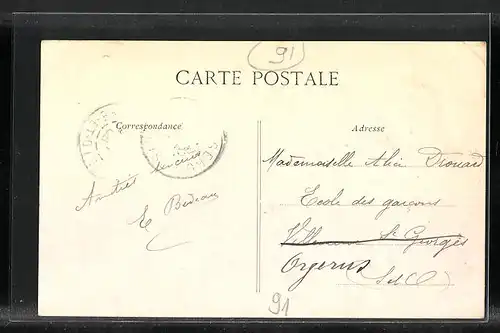 91
CARTE POSTALE
Correspondance
Adresse
Amitiés sincères
E Bedeau
Mademoiselle Alice Drouard
Ecole des garçons
Villeneuve St Georges
Orgerus
(S et O)
91